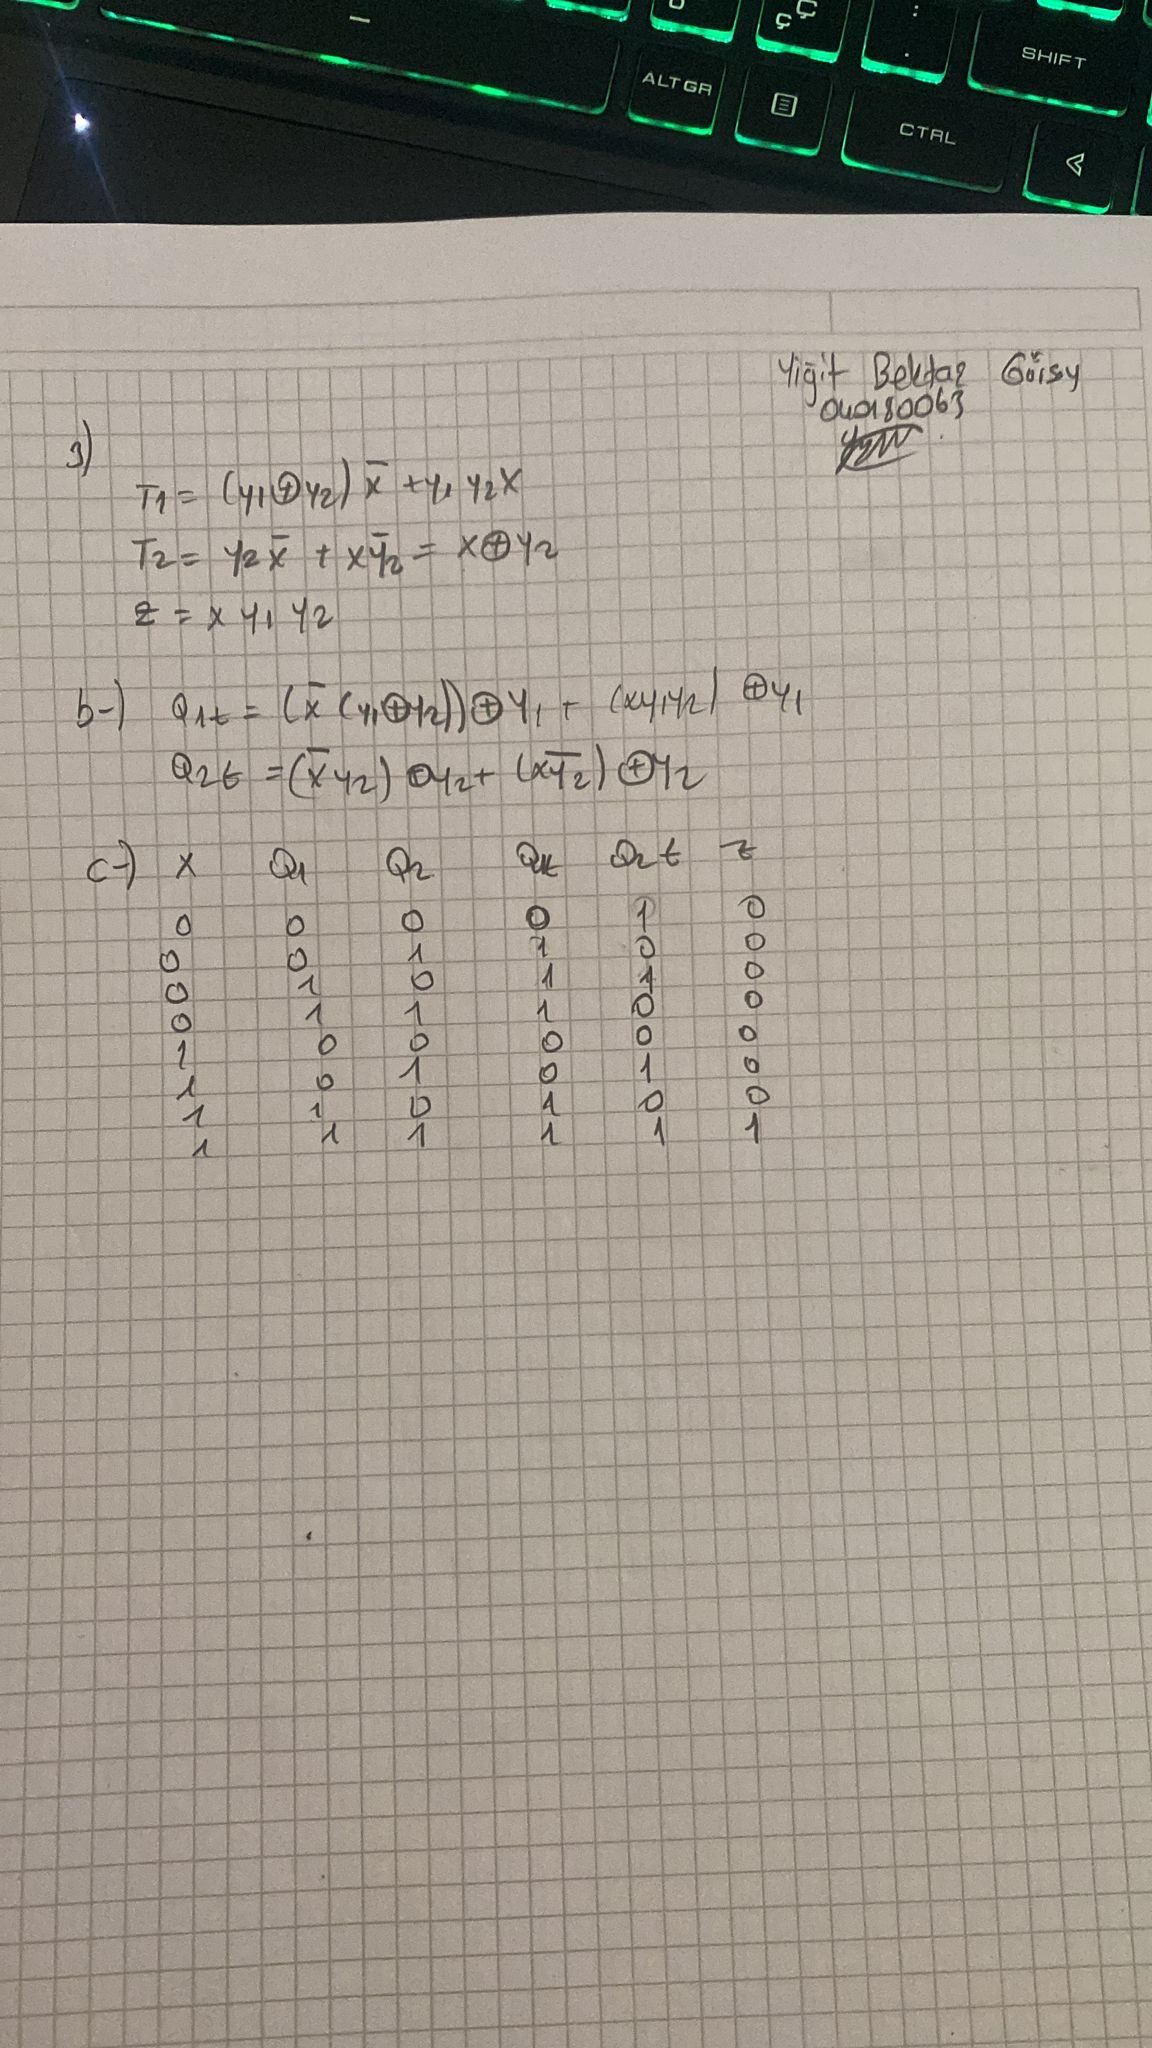 ALT GR
SHIFT
CTRL
Yiğit Bektaş Gürsoy
040180063
3)
T1 = (y1⊕y2) x̅ + y1 y2 x
T2 = y2 x̅ + x y̅2 = x⊕y2
z = x y1 y2
b-) Q1t = (x̅ (y1⊕y2))⊕y1 + (xy1y2) ⊕y1
Q2t = (x̅ y2) ⊕y2 + (x y̅2) ⊕y2
c-) x Q1 Q2 Q1t Q2t z
0 0 0 0 1 0
0 0 1 1 0 0
0 1 0 1 1 0
0 1 1 1 0 0
1 0 0 0 0 0
1 0 1 0 1 0
1 1 0 1 0 0
1 1 1 1 1 1